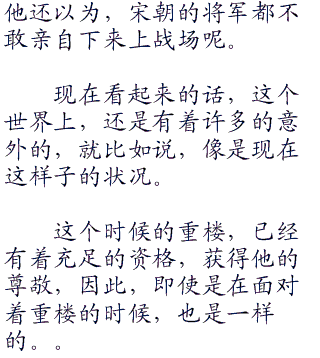 他还以为，宋朝的将军都不
敢亲自下来上战场呢。
现在看起来的话，这个
世界上，还是有着许多的意
外的，就比如说，像是现在
这样子的状况。
这个时候的重楼，已经
有着充足的资格，获得他的
尊敬，因此，即使是在面对
着重楼的时候，也是一样
的。。